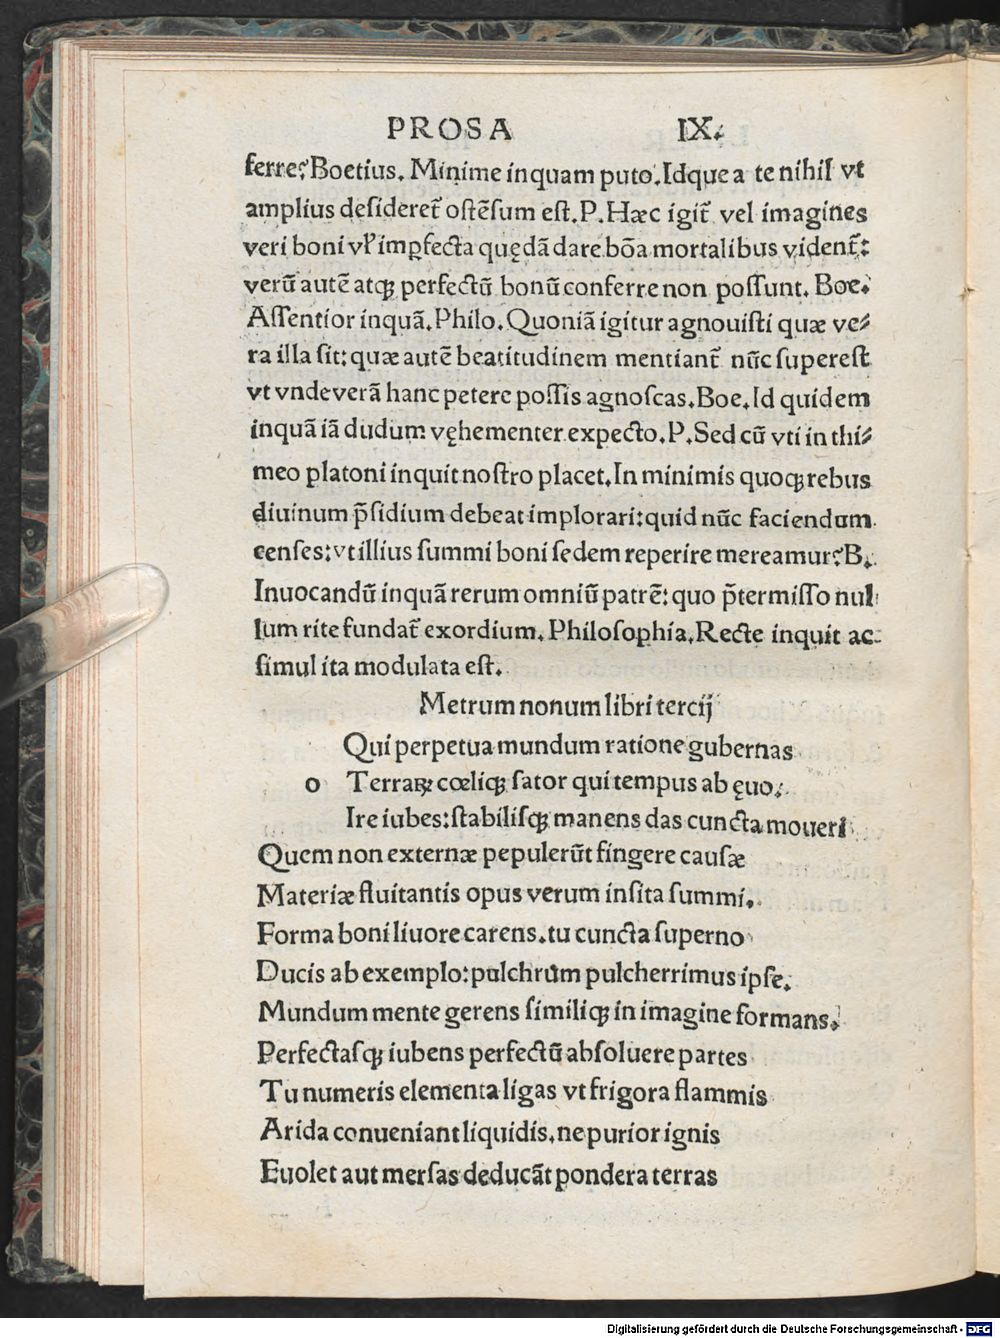 PROSA IX.
ferre? Boetius. Minime inquam puto. Idque a te nihil vt
amplius desideret᷑ ostẽsum est. P. Hæc igit᷑ vel imagines
veri boni vl' imꝑfecta quędã dare bõa mortalibus vident᷑:
verũ autẽ atqꝫ perfectũ bonũ conferre non possunt. Boe.
Assentior inquã. Philo. Quoniã igitur agnouisti quæ ve⸗
ra illa sit: quæ autẽ beatitudinem mentiant᷑ nũc superest
vt vnde verã hanc petere possis agnoscas. Boe. Id quidem
inquã iã dudum vęhementer expecto. P. Sed cũ vti in thi⸗
meo platoni inquit nostro placet. In minimis quoqꝫ rebus
diuinum p̃sidium debeat implorari: quid nũc faciendum
censes: vt illius summi boni sedem reperire mereamur? B.
Inuocandũ inquã rerum omniũ patrẽ: quo p̃termisso nul
lum rite fundat᷑ exordium. Philosophia. Recte inquit ac
simul ita modulata est.
Metrum nonum libri tercij
Qui perpetua mundum ratione gubernas
o Terraꝝ cœliqꝫ sator qui tempus ab ęuo.
Ire iubes: stabilisqꝫ manens das cuncta moueri
Quem non externæ pepulerũt fingere causæ
Materiæ fluitantis opus verum insita summi.
Forma boni liuore carens. tu cuncta superno
Ducis ab exemplo: pulchrum pulcherrimus ipse.
Mundum mente gerens similiqꝫ in imagine formans.
Perfectasqꝫ iubens perfectũ absoluere partes
Tu numeris elementa ligas vt frigora flammis
Arida conueniant liquidis. ne purior ignis
Euolet aut mersas deducãt pondera terras
Digitalisierung gefördert durch die Deutsche Forschungsgemeinschaft - DFG